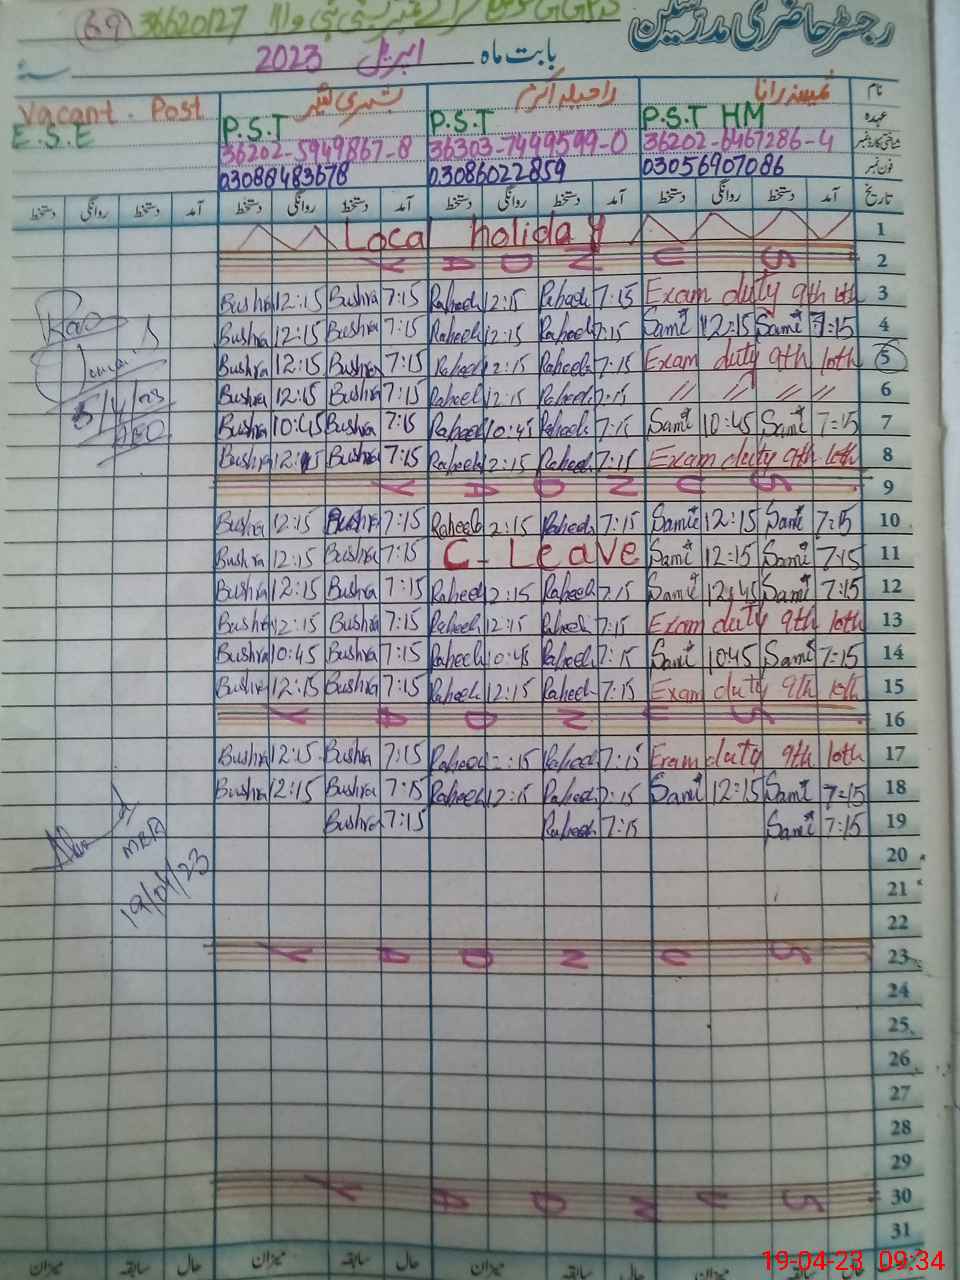 رجسٹر حاضری مدرسین
69 36620127
بابت ماہ اپریل 2023
نام ثمینہ رانا راحیلہ اکرم بشریٰ Vacant . Post
عہدہ P.S.T HM P.S.T P.S.T E.S.E
شناختی کارڈ نمبر 36202-6467286-4 36303-7449599-0 36202-5949867-8
فون نمبر 03056907086 03086022859 03088483678
تاریخ آمد دستخط روانگی دستخط آمد دستخط روانگی دستخط آمد دستخط روانگی دستخط آمد دستخط روانگی دستخط
Local holiday 1
Y A D N U S 2
Bushra 12:15 Bushra 7:15 Raheela 12:15 Raheela 7:15 Exam duty 9th 10th 3
Bushra 12:15 Bushra 7:15 Raheela 12:15 Raheela 7:15 Sami 12:15 Sami 7:15 4
Bushra 12:15 Bushra 7:15 Raheela 12:15 Raheela 7:15 Exam duty 9th 10th 5
Bushra 12:15 Bushra 7:15 Raheela 12:15 Raheela 7:15 // // // // 6
Bushra 10:45 Bushra 7:15 Raheela 10:45 Raheela 7:15 Sami 10:45 Sami 7:15 7
Bushra 12:15 Bushra 7:15 Raheela 12:15 Raheela 7:15 Exam duty 9th 10th 8
Y A D N U S 9
Bushra 12:15 Bushra 7:15 Raheela 12:15 Raheela 7:15 Sami 12:15 Sami 7:15 10
Bushra 12:15 Bushra 7:15 C- Leave Sami 12:15 Sami 7:15 11
Bushra 12:15 Bushra 7:15 Raheela 12:15 Raheela 7:15 Sami 12:45 Sami 7:15 12
Bushra 12:15 Bushra 7:15 Raheela 12:15 Raheela 7:15 Exam duty 9th 10th 13
Bushra 10:45 Bushra 7:15 Raheela 10:45 Raheela 7:15 Sami 10:45 Sami 7:15 14
Bushra 12:15 Bushra 7:15 Raheela 12:15 Raheela 7:15 Exam duty 9th 10th 15
Y A D N U S 16
Bushra 12:15 Bushra 7:15 Raheela 12:15 Raheela 7:15 Exam duty 9th 10th 17
Bushra 12:15 Bushra 7:15 Raheela 12:15 Raheela 7:15 Sami 12:15 Sami 7:15 18
Bushra 7:15 Raheela 7:15 Sami 7:15 19
5/4/23
AEO
MEA
19/04/23
20
21
22
Y A D N U S 23
24
25
26
27
28
29
Y A D N U S 30
31
حال سابقہ میزان حال سابقہ میزان حال سابقہ میزان
19-04-23 09:34